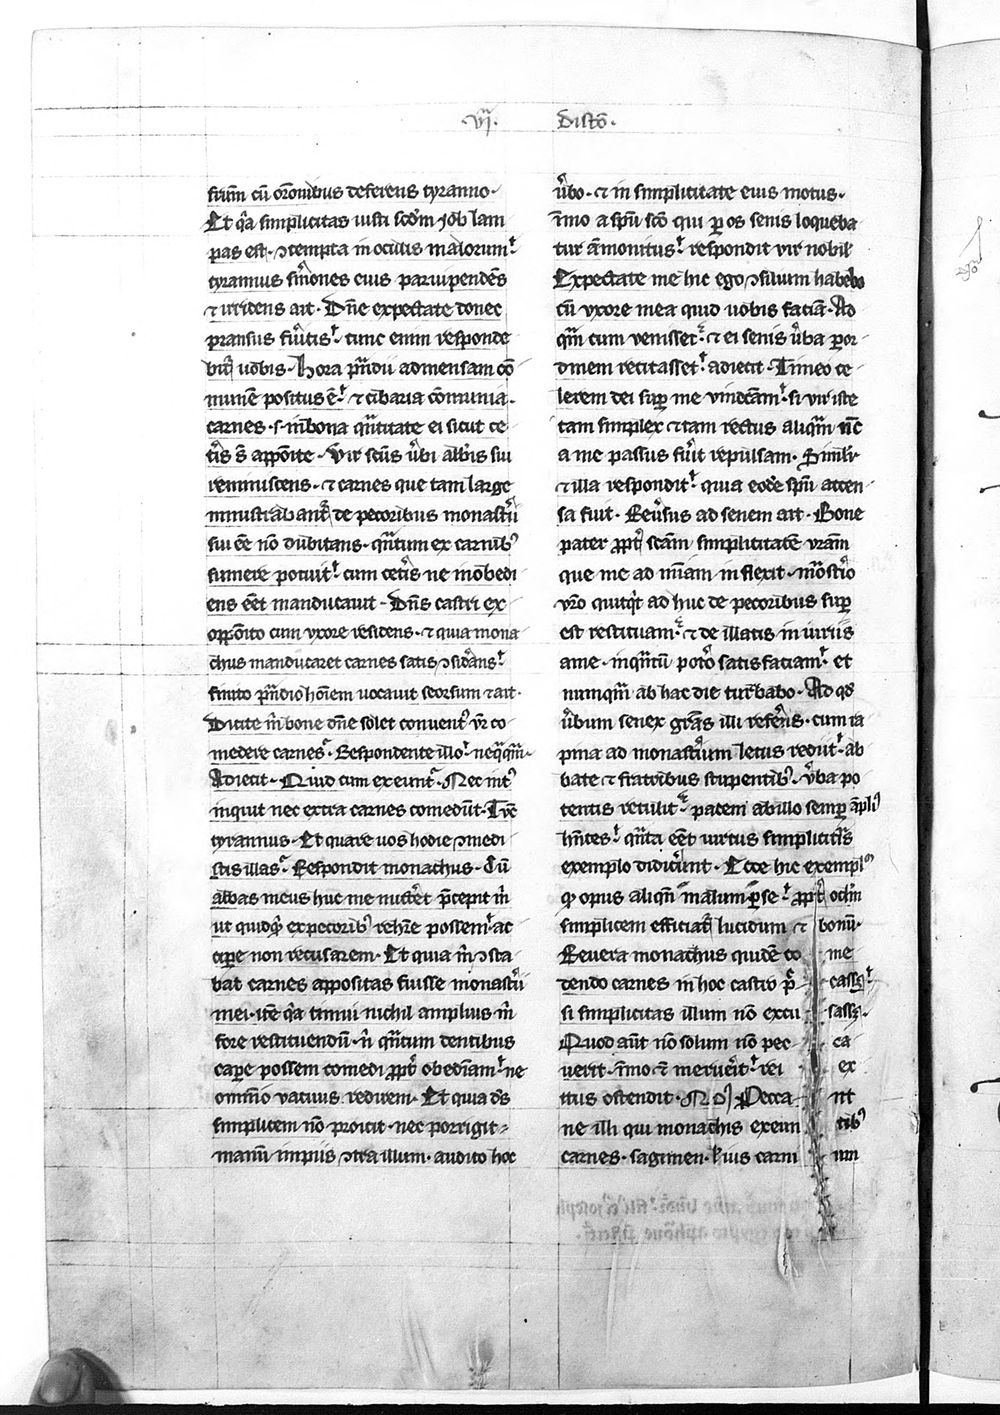 ·vi· Disto·
strum cū orōnibus deferens tyranno·
Et qͥa simplicitas iusti scd̄m iob lam
pas est· ↄtempta in oculis malorum
tyrannus sermōes eius paruipendēs
⁊ irridens ait· Dn̄e expectate donec
pransus fuͥtis· tunc enim responde
bitͬ uobis· Hora prandii ad mensam cō
munē positus ē· ⁊ cibaria cōmunia·
carnes ·s· in bona qͣntitate ei sicut ce
tͥs s̄t appōite· Vir scūs v̄bi abbīs sui
reminiscens· ⁊ carnes que tam large
ministrabantͬ de pecoribus monastͥii
sui eē nō dubitans· qͣntum ex carnibꝰ
sumere potuit· cum cetͥs ne inobedi
ens eēt manducauit· Dn̄s castri ex
oppōito cum vxore residens· ⁊ quia mona
chus manducaret carnes satis ↄsidͥans·
finito prandio hoīem uocauit seorsum ⁊ ait·
Dicite m̄ bone dn̄e solet conuentꝰ vr̄ co
medere carnes· Respondente illo· neqͣqͣm·
Adiecit· Quid cum exeunt· Nec intꝰ
inquit nec extra carnes comedūt· Tūc
tyrannus· Et quare uos hodie ↄmedi
stis illas· Respondit monachus· Cū
abbas meus huc me mittͤet p̄cepit m̄
ut quidqͥd ex pecoribꝰ rehr̄e possem· ac
cipe non recusarem· Et quia m̄ ↄsta
bat carnes appositas fuisse monastͥii
mei· itē qͥa timui nichil amplius m̄
fore restituendū· n̄ qͣntum dentibus
cape possem comedi ꝓptͬ obediam· ne
omnīo vacuus redirem· Et quia ds̄
simplicem nō proicit· nec porrigit
manū impiis ↄtra illum· audito hoc
v̄bo· ⁊ in simplicitate eius motus·
īmo a spū scō qui ꝑ os senis loqueba
tur āmonitus· respondit vir nobil
Expectate me hic ego ↄsilium habebo
cū vxore mea quid uobis faciā· Ad
qͣm cum venisset· ⁊ ei senis v̄ba ꝑ or
dinem recitasset· adiecit· Timeo ce
lerem dei suꝑ me vindcām· si vir iste
tam simplex ⁊ tam rectus aliqͣm nūc
a me passus fuͥit repulsam· Similr̄
⁊ illa respondit· quia eodē spū accen
sa fuit· Reuͥsus ad senem ait· Bone
pater ꝓptͬ scām simplicitatē vrām
que me ad mīam inflexit· mōstͥio
vr̄o quicqͥd adhuc de pecoribus suꝑ
est restituam· ⁊ de illatis iniuriis
a me· inqͣntū potͦo satisfaciam· et
numqͣm ab hac die turbabo· Ad qd̄
v̄bum senex grās illi referēs· cum ra
pina ad monastͥium letus rediit· ab
bate ⁊ fratribus stupentibꝰ· v̄ba po
tentis retulit· pacem ab illo semꝑ āpliꝰ
hn̄tes· qͣnta eēt virtus simplicitͣis
exemplo didicͤunt· Ecce hic exemplꝰ
qͦ opus aliqn̄ malum ꝑ se· ꝓptͬ oclm̄
simplicem efficiatͬ lucidum ⁊ bonū·
Reuera monachus quidē co me
dendo carnes in hoc castro pͥ cassꝫ·
si simplicitas illum nō excu sassꝫ·
Quod aūt nō solum nō pec ca
uerit· īmo ⁊ meruͤit· rei ex
itus ostendit· Nōꝰ Pecca nt
ne illi qui monachis exeun tibꝰ
carnes· sagimen· l̓ ius carni um